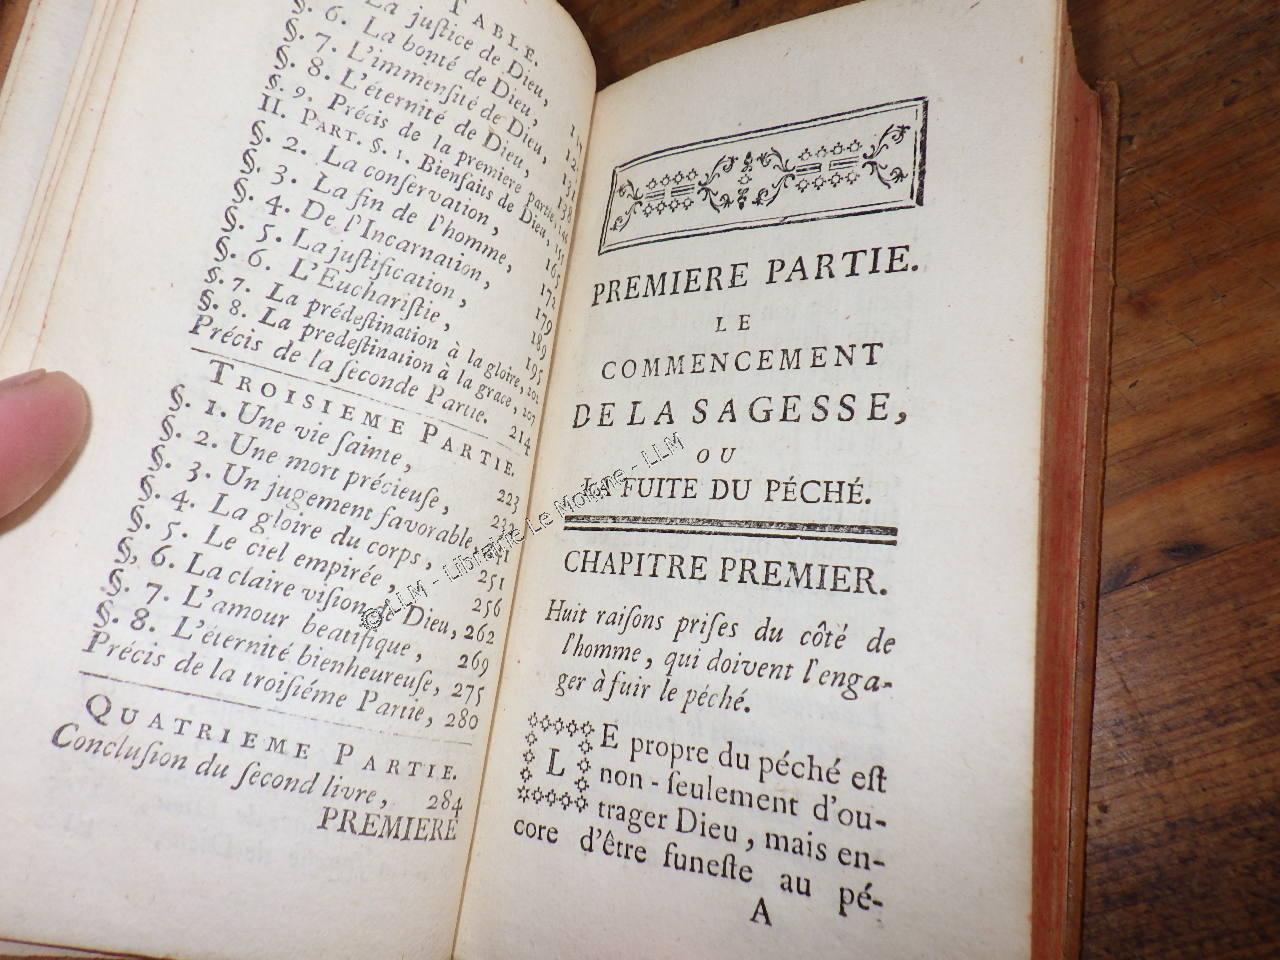 TABLE.
La juſtice de Dieu,
§. 6. La bonté de Dieu,
§. 7. L'immenſité de Dieu,
§. 8. L'éternité de Dieu,
§. 9. Précis de la premiere partie,
II. PART. §. 1. Bienfaits de Dieu,
§. 2. La conſervation, 165
§. 3. La fin de l'homme, 172
§. 4. De l'Incarnation, 179
§. 5. La juſtification, 189
§. 6. L'Euchariſtie, 195
§. 7. La prédeſtination à la gloire, 202
§. 8. La predeſtination à la grace, 207
Précis de la ſeconde Partie. 214
TROISIEME PARTIE.
§. 1. Une vie ſainte, 223
§. 2. Une mort précieuſe, 232
§. 3. Un jugement favorable,
§. 4. La gloire du corps, 251
§. 5. Le ciel empirée, 256
§. 6. La claire viſion de Dieu, 262
§. 7. L'amour beatifique, 269
§. 8. L'éternité bienheureuſe, 275
Précis de la troiſiéme Partie, 280
QUATRIEME PARTIE.
Concluſion du ſecond livre, 284
PREMIERE
PREMIERE PARTIE.
LE
COMMENCEMENT
DE LA SAGESSE,
OU
LA FUITE DU PÉCHÉ.
CHAPITRE PREMIER.
Huit raiſons priſes du côté de
l'homme, qui doivent l'enga-
ger à fuir le péché.
LE propre du péché eſt
non-ſeulement d'ou-
trager Dieu, mais en-
core d'être funeſte au pé-
A
© LLM - Librairie Le Moine - LLM